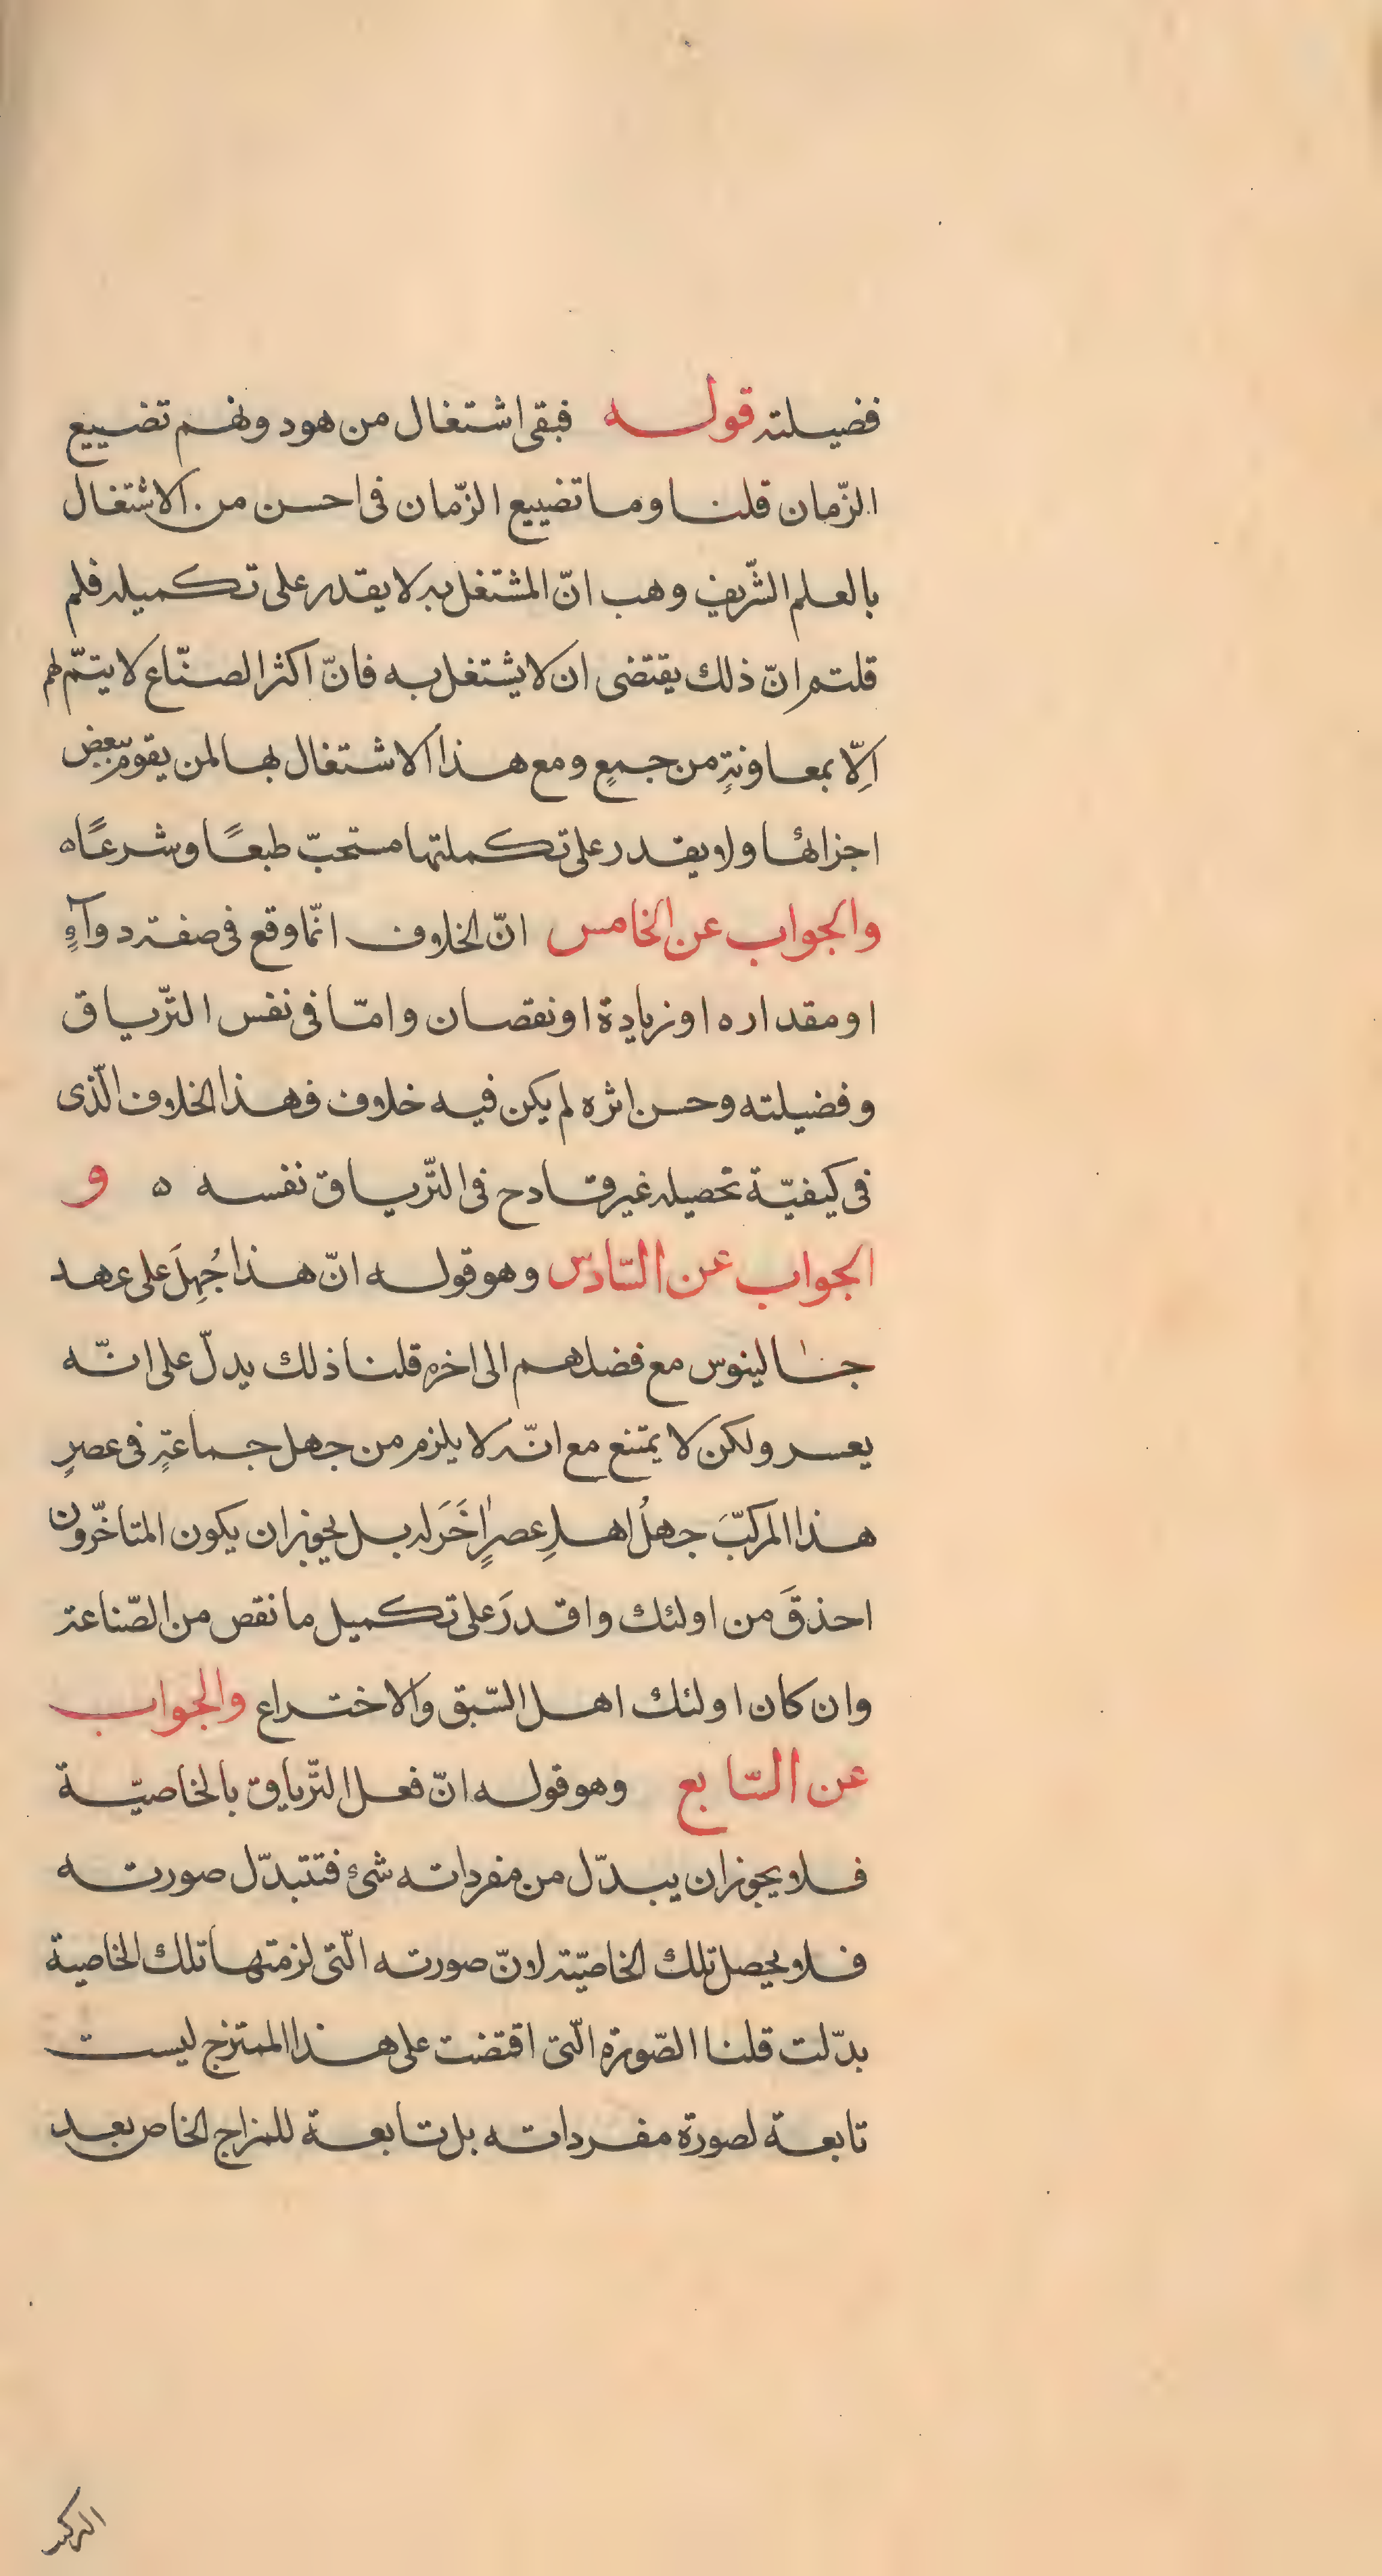 فضيلته قوله فبقى اشتغال من هو دونهم تضييع
الزّمان قلنا وما تضييع الزّمان فى احسن من الاشتغال
بالعلم الشّريف وهب انّ المشتغل به لا يقدر على تكميله فلم
قلتم انّ ذلك يقتضى ان لا يشتغل به فانّ اكثر الصنّاع لا يتمّ لهم
اِلّا بمعاونةٍ من جمعٍ ومع هذا الاشتغال بها لمن يقوم ببعض
اجزائها ولا يقدر على تكملتها مستحبّ طبعًا وشرعًا ه
والجواب عن الخامس انّ الخلاف انّما وقع فى صفة دوآءٍ
او مقداره او زيادة او نقصان وامّا فى نفس التّرياق
وفضيلته وحسن اثره لم يكن فيه خلاف فهذا الخلاف الّذى
فى كيفيّة تحصيله غير قادح فى التّرياق نفسه ه و
الجواب عن السّادس وهو قوله انّ هذا جُهِلَ على عهد
جالينوس مع فضلهم الى اخره قلنا ذلك يدلّ على انّه
يعسر ولكن لا يمتنع مع انّه لا يلزم من جهل جماعةٍ فى عصرٍ
هذا المركبّ جهلُ اهلِ عصرٍ اٰخَرَ له بل يجوز ان يكون المتاخّرون
احذقَ من اولئك واقدرَ على تكميل ما نقص من الصّناعة
وان كان اولئك اهل السّبق والاختراع والجواب
عن السّابع وهو قوله انّ فعل التّرياق بالخاصيّة
فلا يجوز ان يبدّل من مفرداته شئ فتتبدّل صورته
فلا يحصل تلك الخاصيّة لانّ صورته الّتى لزمتها تلك الخاصية
بدّلت قلنا الصّورة الّتى اقتضت على هذا الممتزج ليست
تابعة لصورة مفرداته بل تابعة للمزاج الخاص بعد